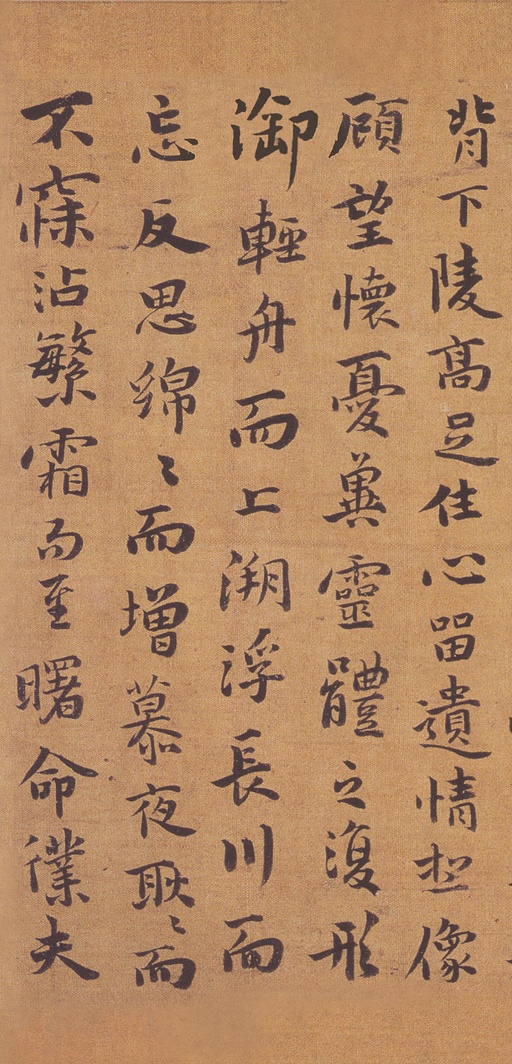 背下陵高足住心留遺情想像
顧望懷憂冀靈體之復形
御輕舟而上溯浮長川而
忘反思綿〻而增慕夜耿〻而
不寐沾繁霜而至曙命僕夫